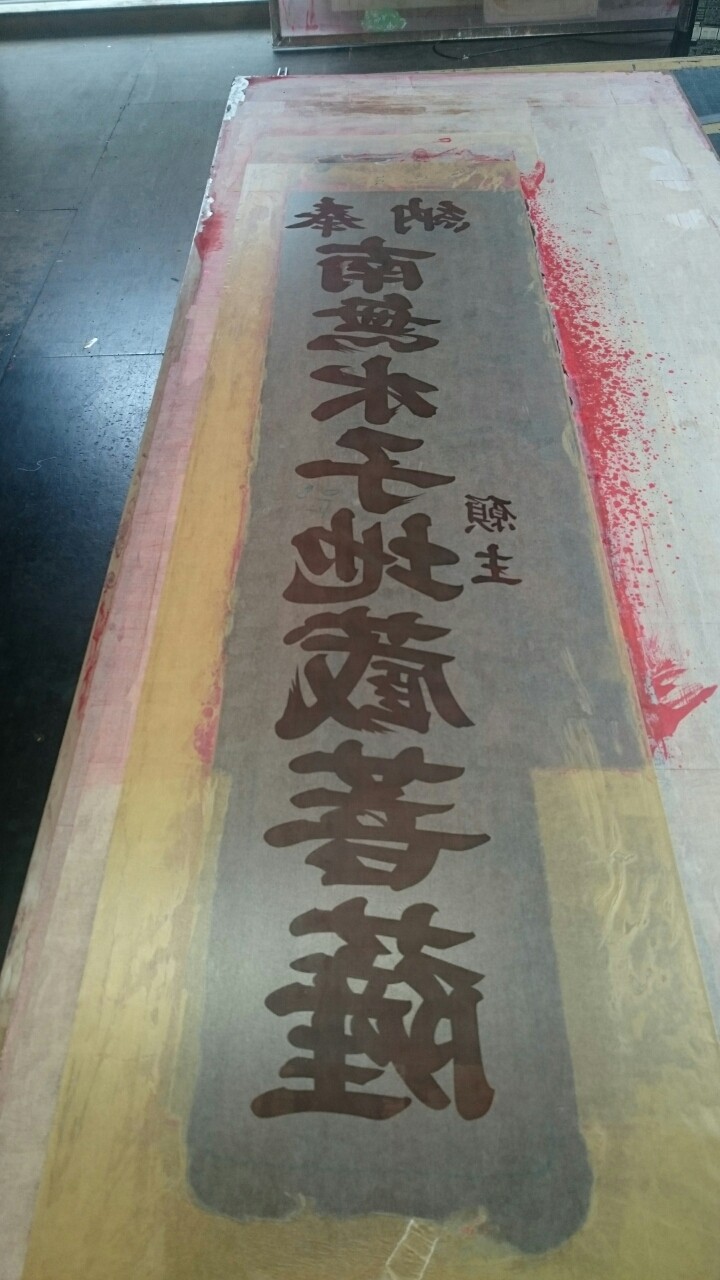 奉納
南無水子地蔵菩薩
願主